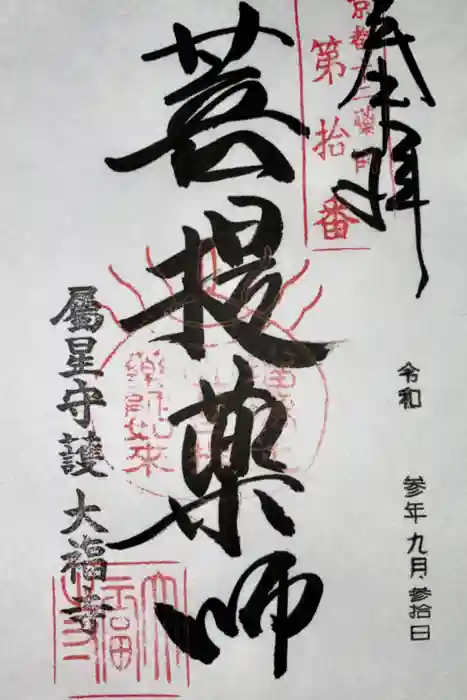 奉拝
京都十二薬師
第拾番
菩提薬師
薬師如来
属星守護 大福寺
令和 参年 九月 参拾日